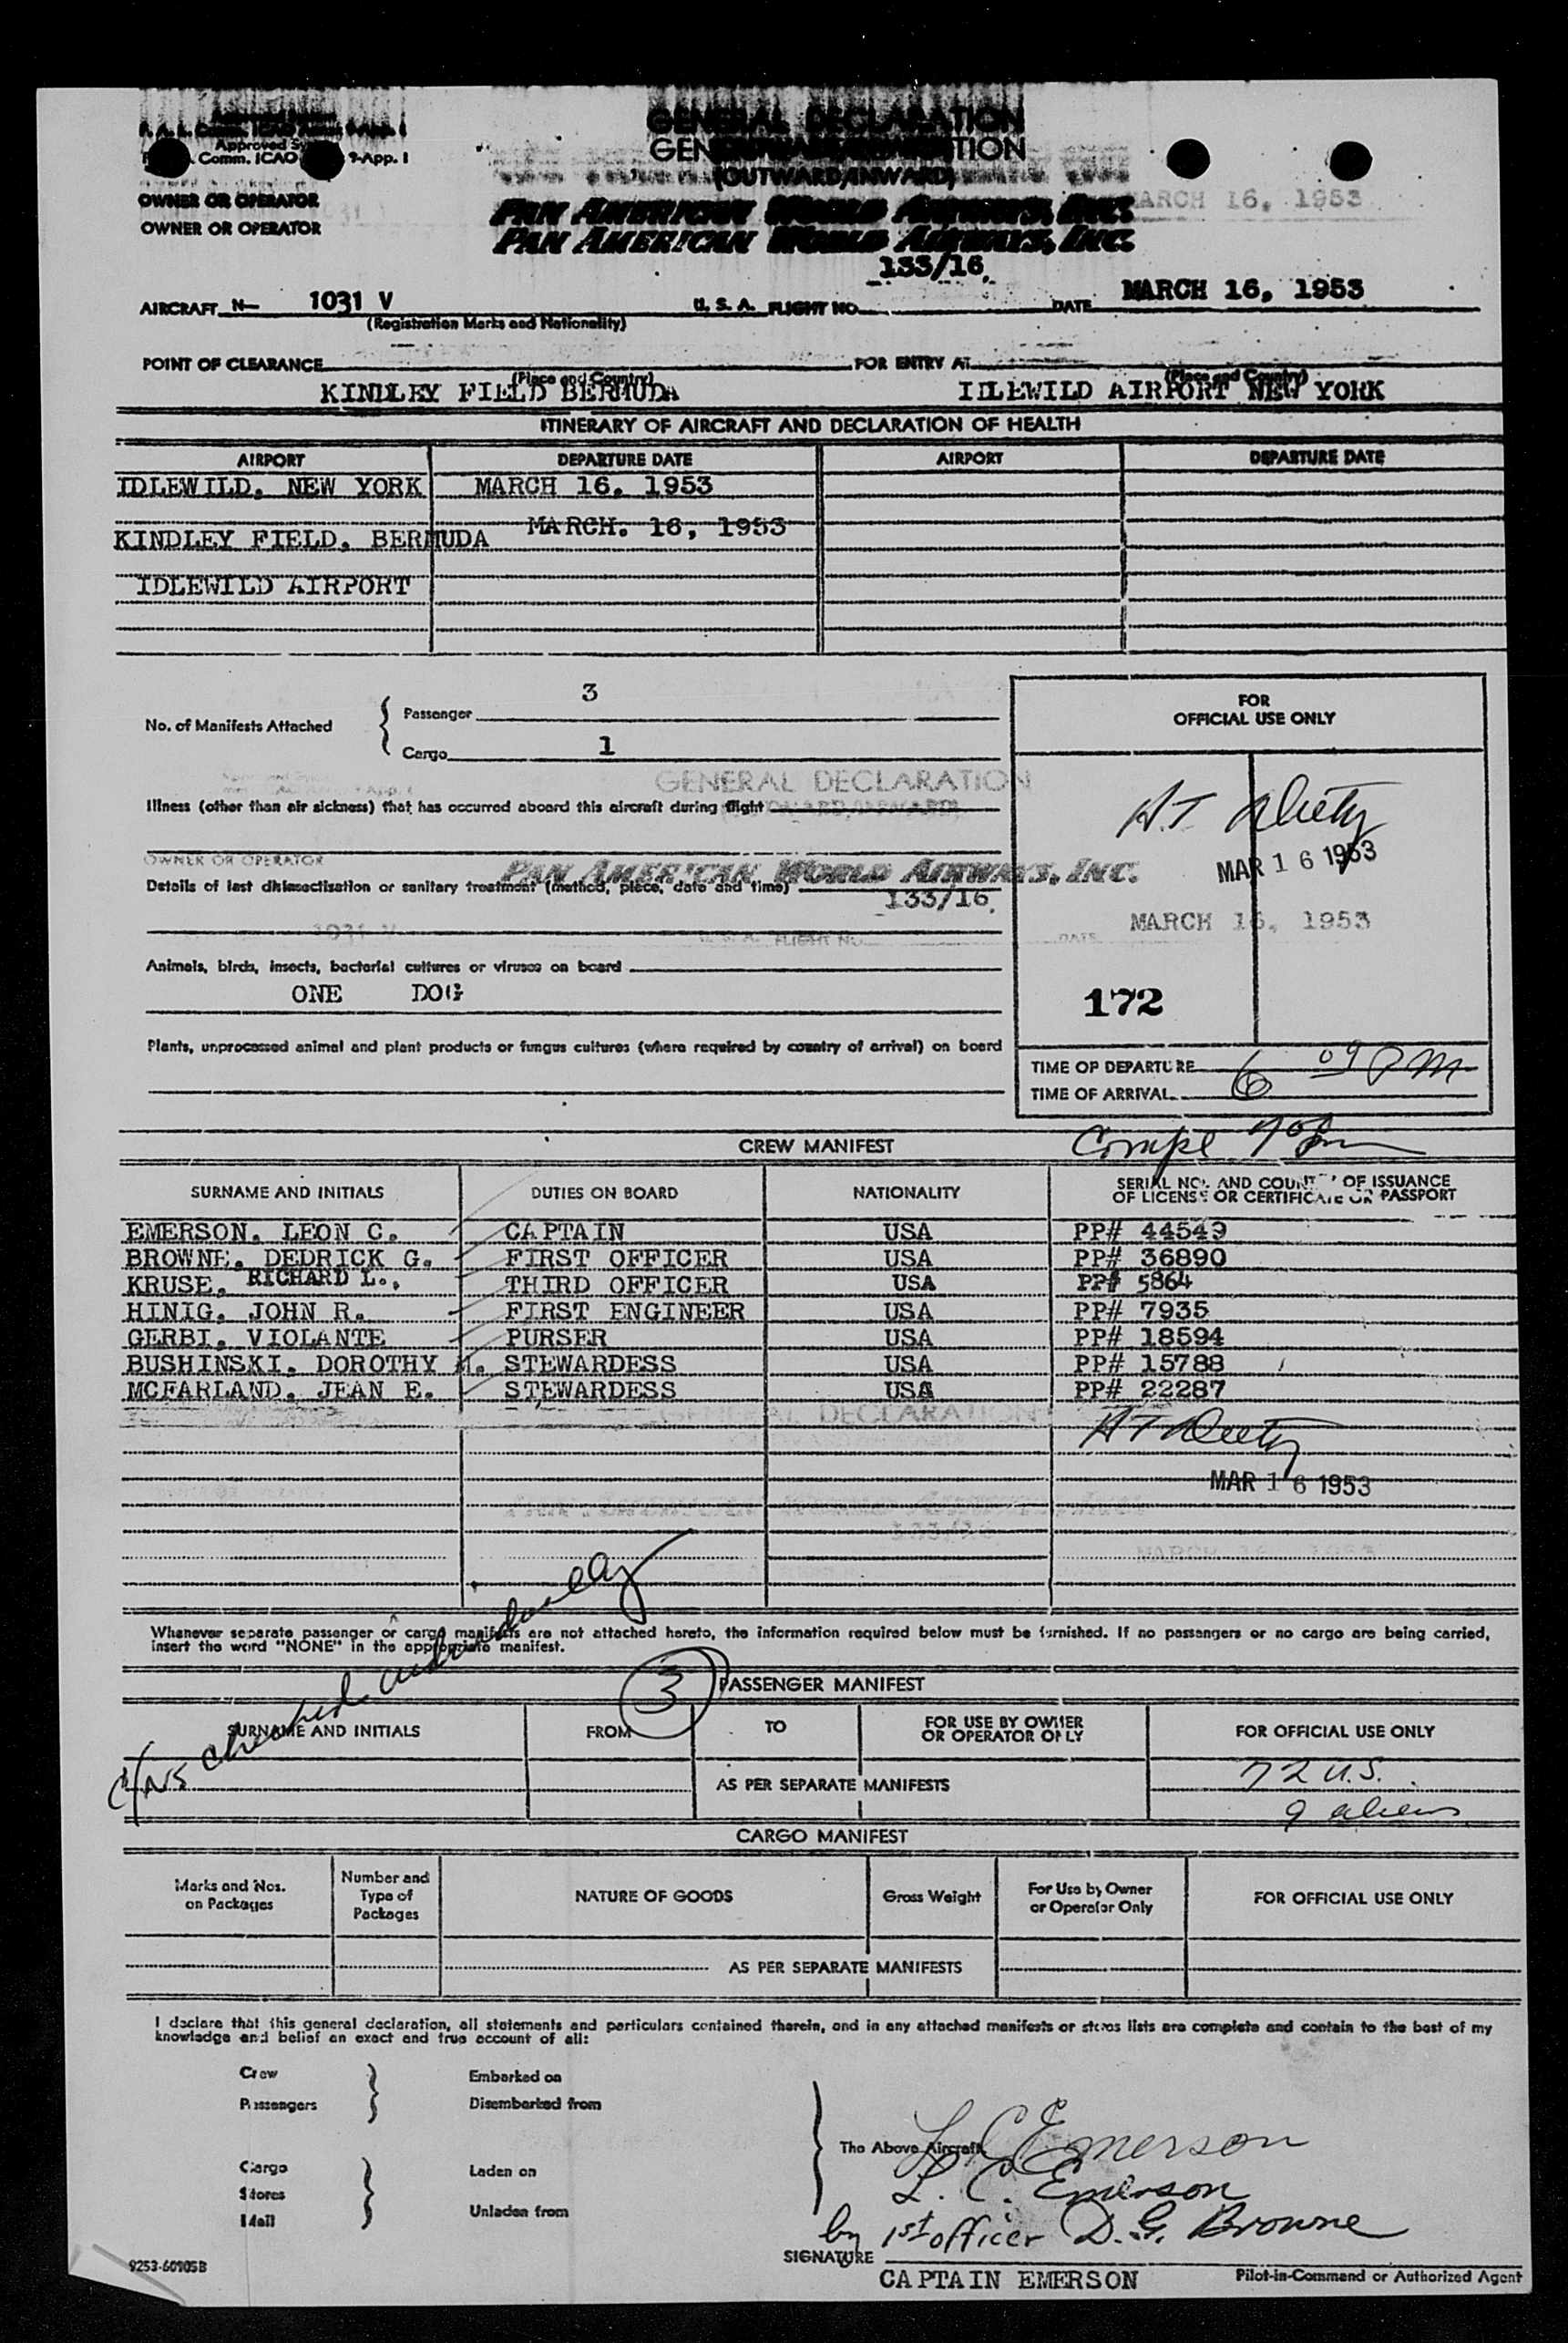 Approved
Comm. ICAO 9-App. 1
GENERAL DECLARATION
(OUTWARD/INWARD)
MARCH 16, 1953
OWNER OR OPERATOR
OWNER OR OPERATOR
PAN AMERICAN WORLD AIRWAYS, INC.
PAN AMERICAN WORLD AIRWAYS, INC.
133/16
AIRCRAFT N- 1031 V U. S. A. FLIGHT NO. DATE MARCH 16, 1953
(Registration Marks and Nationality)
POINT OF CLEARANCE FOR ENTRY AT
(Place and Country) (Place and Country)
KINDLEY FIELD BERMUDA IDLEWILD AIRPORT NEW YORK
ITINERARY OF AIRCRAFT AND DECLARATION OF HEALTH
AIRPORT DEPARTURE DATE AIRPORT DEPARTURE DATE
IDLEWILD, NEW YORK MARCH 16. 1953
KINDLEY FIELD, BERMUDA MARCH. 16, 1953
IDLEWILD AIRPORT
No. of Manifests Attached
Passenger 3
Cargo 1
FOR
OFFICIAL USE ONLY
GENERAL DECLARATION
Illness (other than air sickness) that has occurred aboard this aircraft during flight
OWNER OR OPERATOR
PAN AMERICAN WORLD AIRWAYS, INC.
Details of last disinsectisation or sanitary treatment (method, place, date and time)
133/16
H.T.
MAR 16 1953
MARCH 16, 1953
1031 V U. S. A. FLIGHT NO. DATE
Animals, birds, insects, bacterial cultures or viruses on board
ONE DOG
172
Plants, unprocessed animal and plant products or fungus cultures (where required by country of arrival) on board
TIME OF DEPARTURE
TIME OF ARRIVAL 6 09 PM
CREW MANIFEST
SURNAME AND INITIALS DUTIES ON BOARD NATIONALITY SERIAL NO. AND COUNTRY OF ISSUANCE
OF LICENSE OR CERTIFICATE OR PASSPORT
EMERSON. LEON C. CAPTAIN USA PP# 44549
BROWNE. DEDRICK G. FIRST OFFICER USA PP# 36890
KRUSE. RICHARD L., THIRD OFFICER USA PP# 5864
HINIG. JOHN R. FIRST ENGINEER USA PP# 7935
GERBI. VIOLANTE PURSER USA PP# 18594
BUSHINSKI. DOROTHY M. STEWARDESS USA PP# 15788
MCFARLAND. JEAN E. STEWARDESS USA PP# 22287
GENERAL DECLARATION
MAR 16 1953
Whenever separate passenger or cargo manifests are not attached hereto, the information required below must be furnished. If no passengers or no cargo are being carried,
insert the word "NONE" in the appropriate manifest.
checked individually
3
PASSENGER MANIFEST
SURNAME AND INITIALS FROM TO FOR USE BY OWNER
OR OPERATOR ONLY FOR OFFICIAL USE ONLY
AS PER SEPARATE MANIFESTS
72 U.S.
9 aliens
CARGO MANIFEST
Marks and Nos.
on Packages
Number and
Type of
Packages
NATURE OF GOODS
Gross Weight
For Use by Owner
or Operator Only
FOR OFFICIAL USE ONLY
AS PER SEPARATE MANIFESTS
I declare that this general declaration, all statements and particulars contained therein, and in any attached manifests or stores lists are complete and contain to the best of my
knowledge and belief an exact and true account of all:
Crew Embarked on
Passengers Disembarked from
The Above Aircraft
Cargo Laden on
Stores
Mail Unladen from
L C Emerson
L. C. Emerson
by 1st officer D. G. Browne
SIGNATURE
CAPTAIN EMERSON Pilot-in-Command or Authorized Agent
9253-60905B